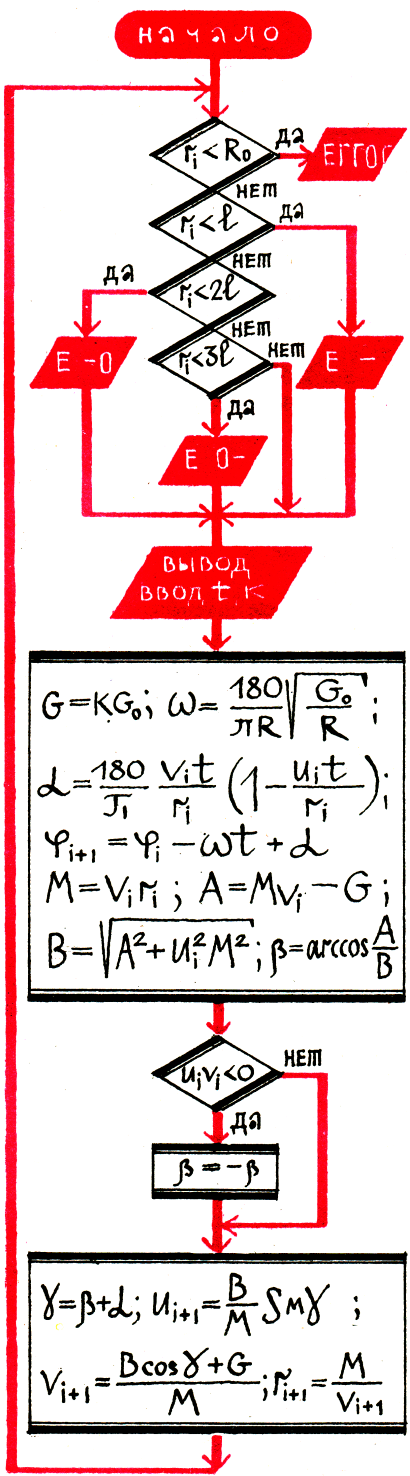 начало
rᵢ < R₀
да
Error
нет
rᵢ < l
да
нет
да
rᵢ < 2l
нет
E -0
rᵢ < 3l
нет
E -
да
E 0-
ВЫВОД
ВВОД t, K
G = KG₀; ω = 180/πR √(G₀/R);
α = 180/π vᵢt/rᵢ (1 - uᵢt/rᵢ);
φᵢ₊₁ = φᵢ - ωt + α
M = vᵢrᵢ; A = Mvᵢ - G;
B = √(A² + uᵢ²M²); β = arccos A/B
uᵢvᵢ < 0
нет
да
β = -β
γ = β + α; uᵢ₊₁ = B/M sin γ;
vᵢ₊₁ = (B cos γ + G)/M; rᵢ₊₁ = M/vᵢ₊₁